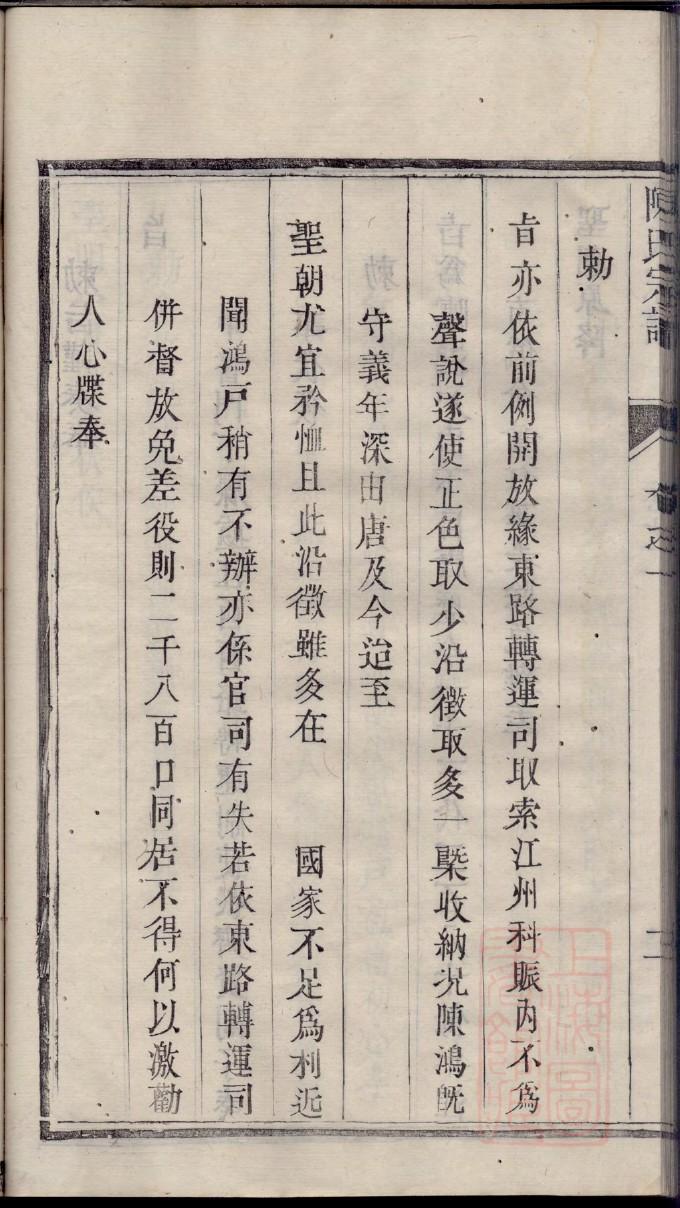 陳氏宗譜
卷之一
三
勅
旨亦依前例開放緣東路轉運司取索江州科賬內不爲
聲說遂使正色取少沿徵取多一槩收納况陳鴻旣
守義年深由唐及今迨至
聖朝尤宜矜恤且此沿徵雖多在 國家不足爲利近
聞鴻戶稍有不辦亦係官司有失若依東路轉運司
併督放免差役則二千八百口同居不得何以激勸
人心牒奉